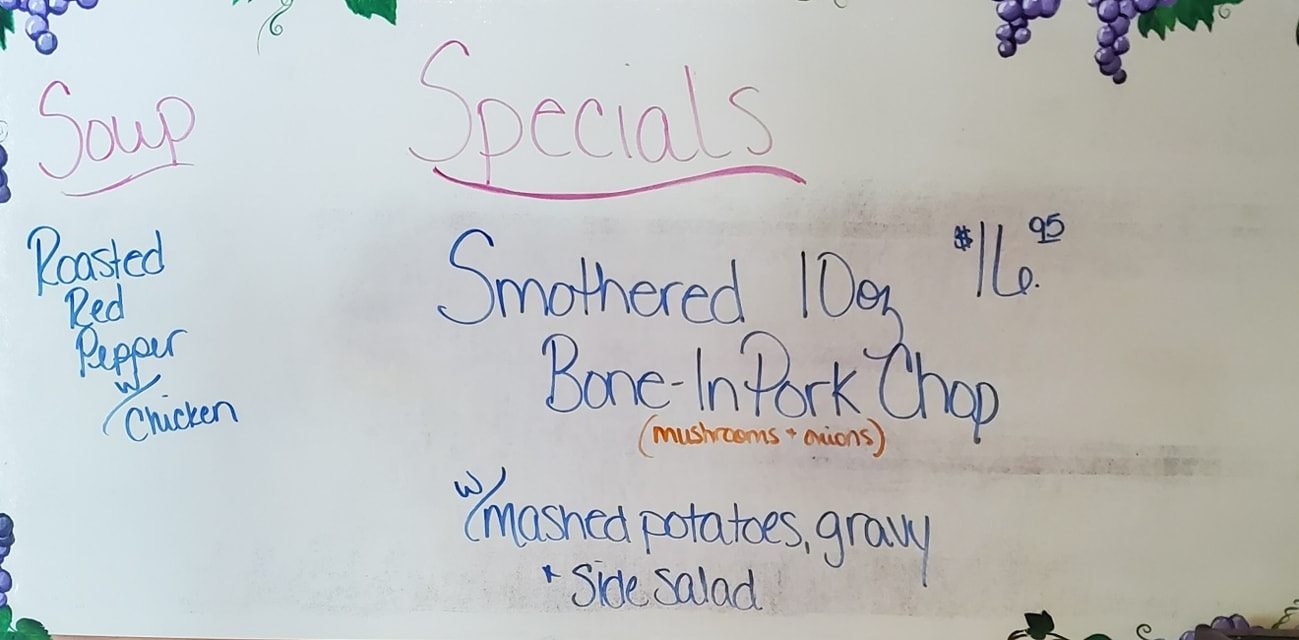 Soup
Roasted
Red
Pepper
w/
Chicken
Specials
Smothered 10oz $16.95
Bone-In Pork Chop
(mushrooms + onions)
w/mashed potatoes, gravy
+ side salad